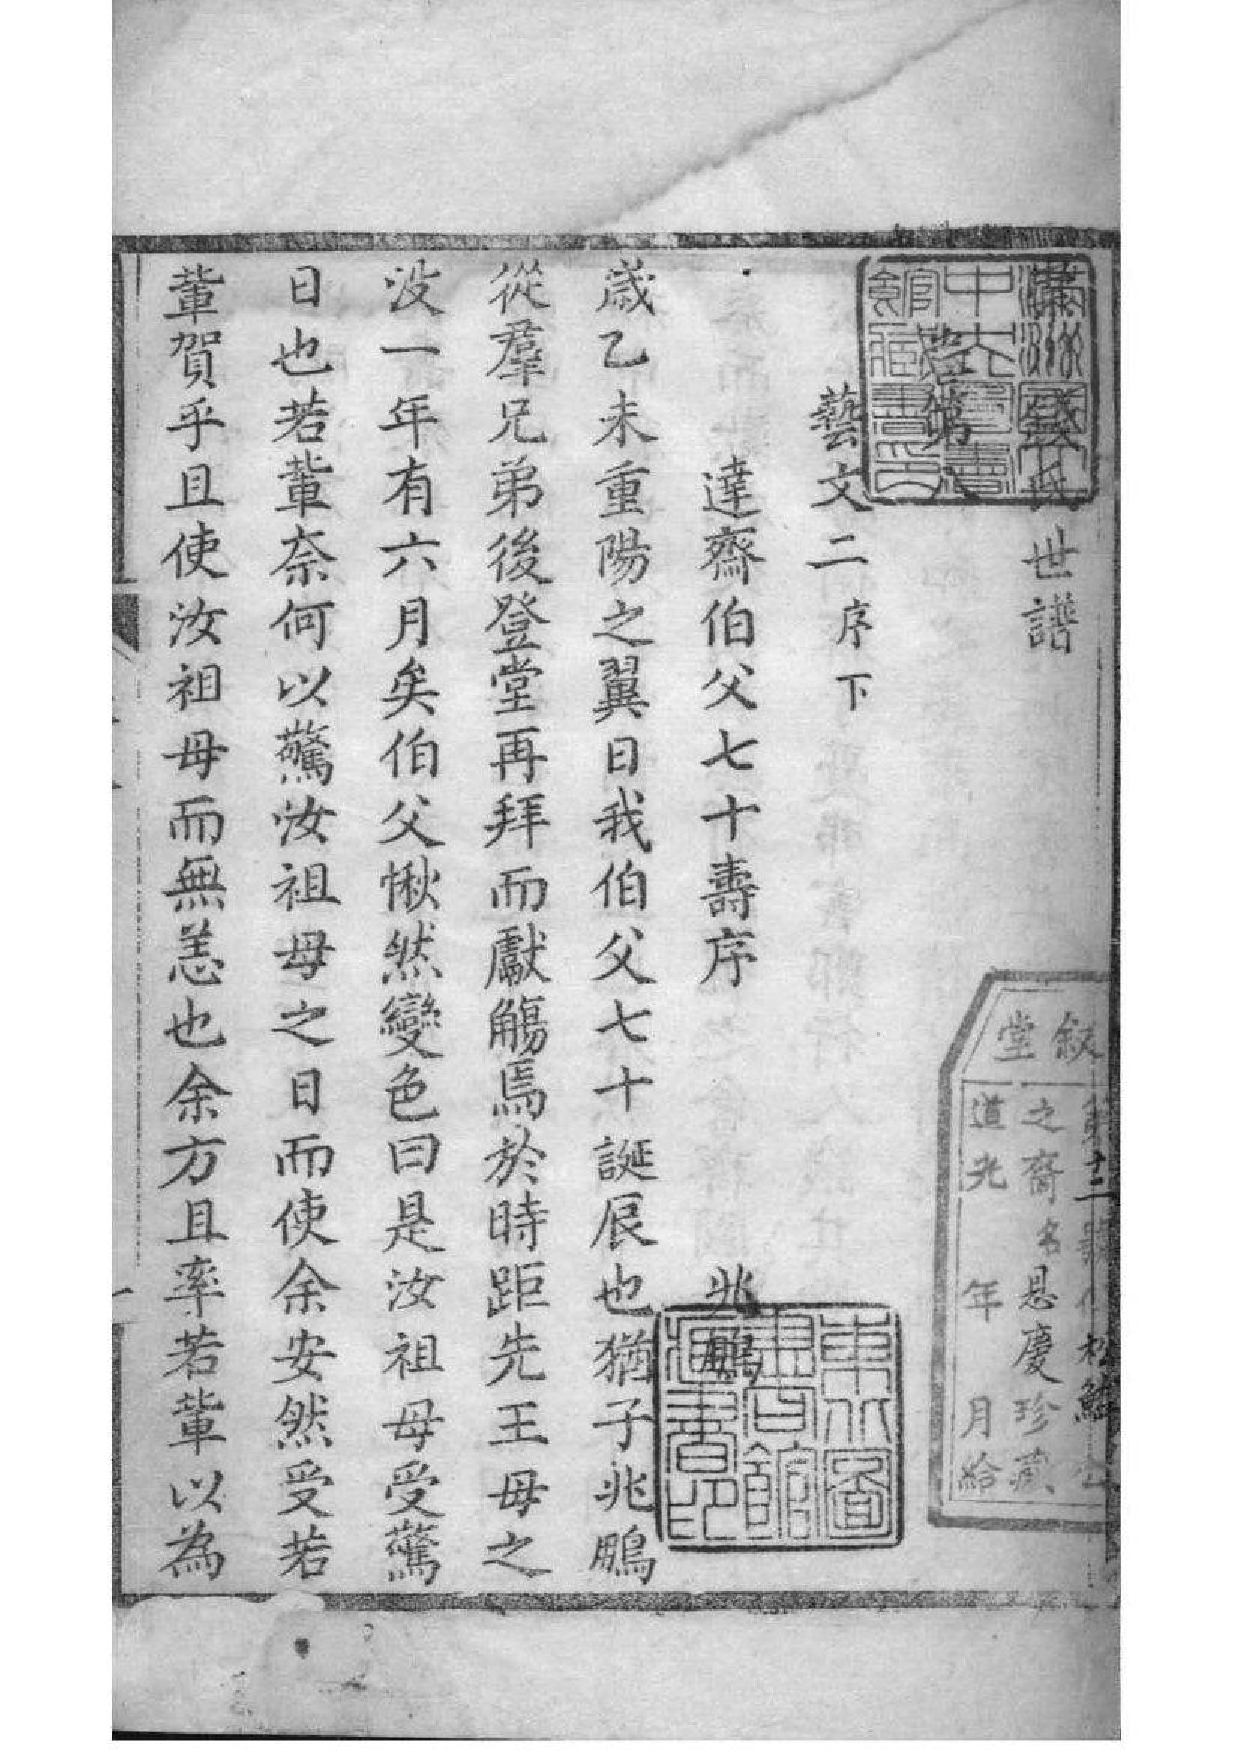 錢氏世譜
卷第八
藝文二 序下
達齋伯父七十壽序 兆鵬
歲乙未重陽之翼日我伯父七十誕辰也猶子兆鵬
從羣兄弟後登堂再拜而獻觴焉於時距先王母之
沒一年有六月矣伯父愀然變色曰是汝祖母受驚
日也若輩奈何以驚汝祖母之日而使余安然受若
輩賀乎且使汝祖母而無恙也余方且率若輩以為
敘
堂
之裔名恳慶珍藏
道光 年 月給
東北圖
書館
藏書印